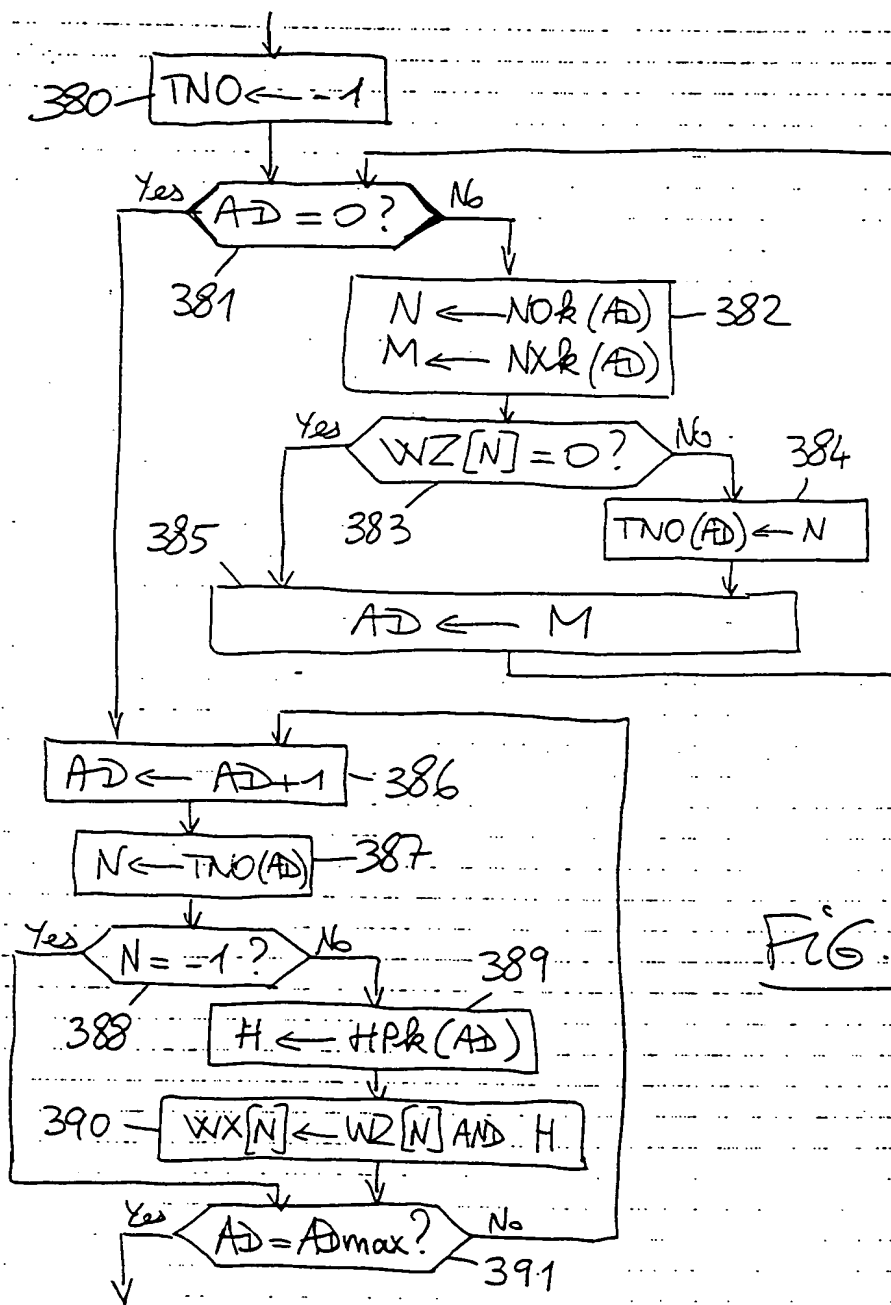 380 TNO ← -1
Yes AD = 0? No
381
N ← NOk (AD)
M ← NXk (AD)
382
Yes WZ[N] = 0? No
383
384
TNO(AD) ← N
385
AD ← M
AD ← AD+1 386
N ← TNO(AD) 387
Yes N = -1? No
388
389
H ← HPk (AD)
390 WX[N] ← WZ[N] AND H
Yes AD = ADmax? No
391
FiG.